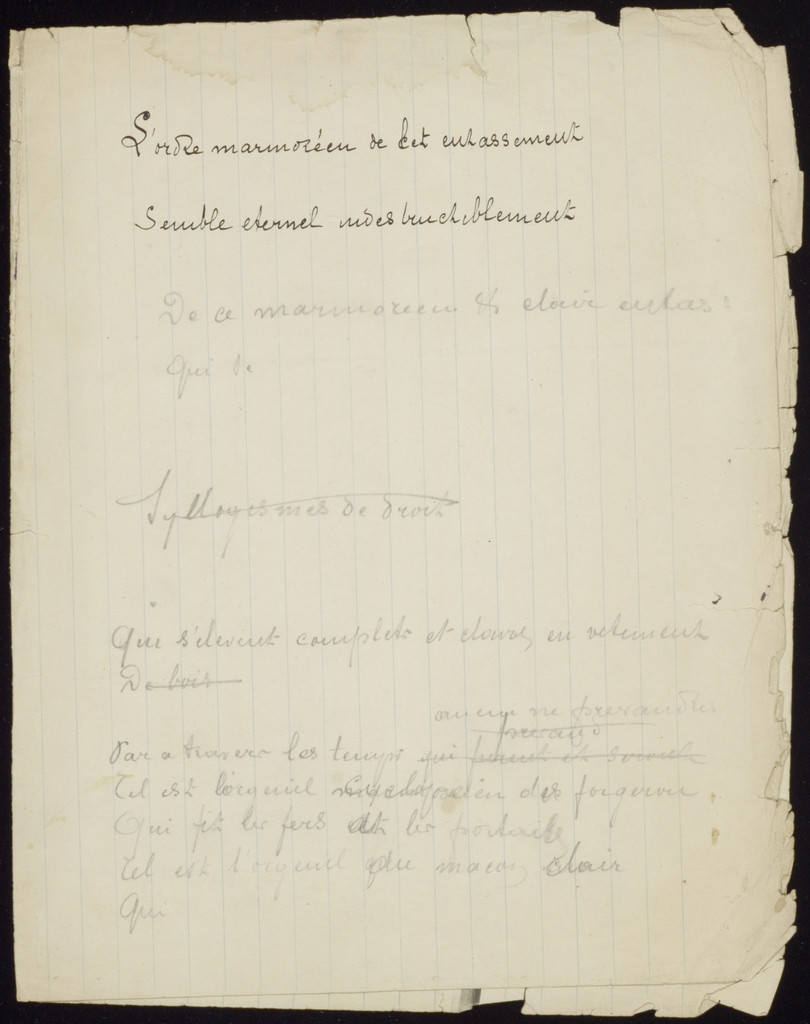 L'ordre marmoréen de cet entassement
Semble eternel indestructiblement
De ce marmoreen & clair entas=
Qui de
Syllogismes de droit
Que s'elevent complets et clairs, en vetement
De bois
ne
Par a travers les temps qui furent et
Tel est l'orgueil cyclopeen des forgerons
Qui fit les fers et les portails
Tel est l'orgueil du macon clair
Qui